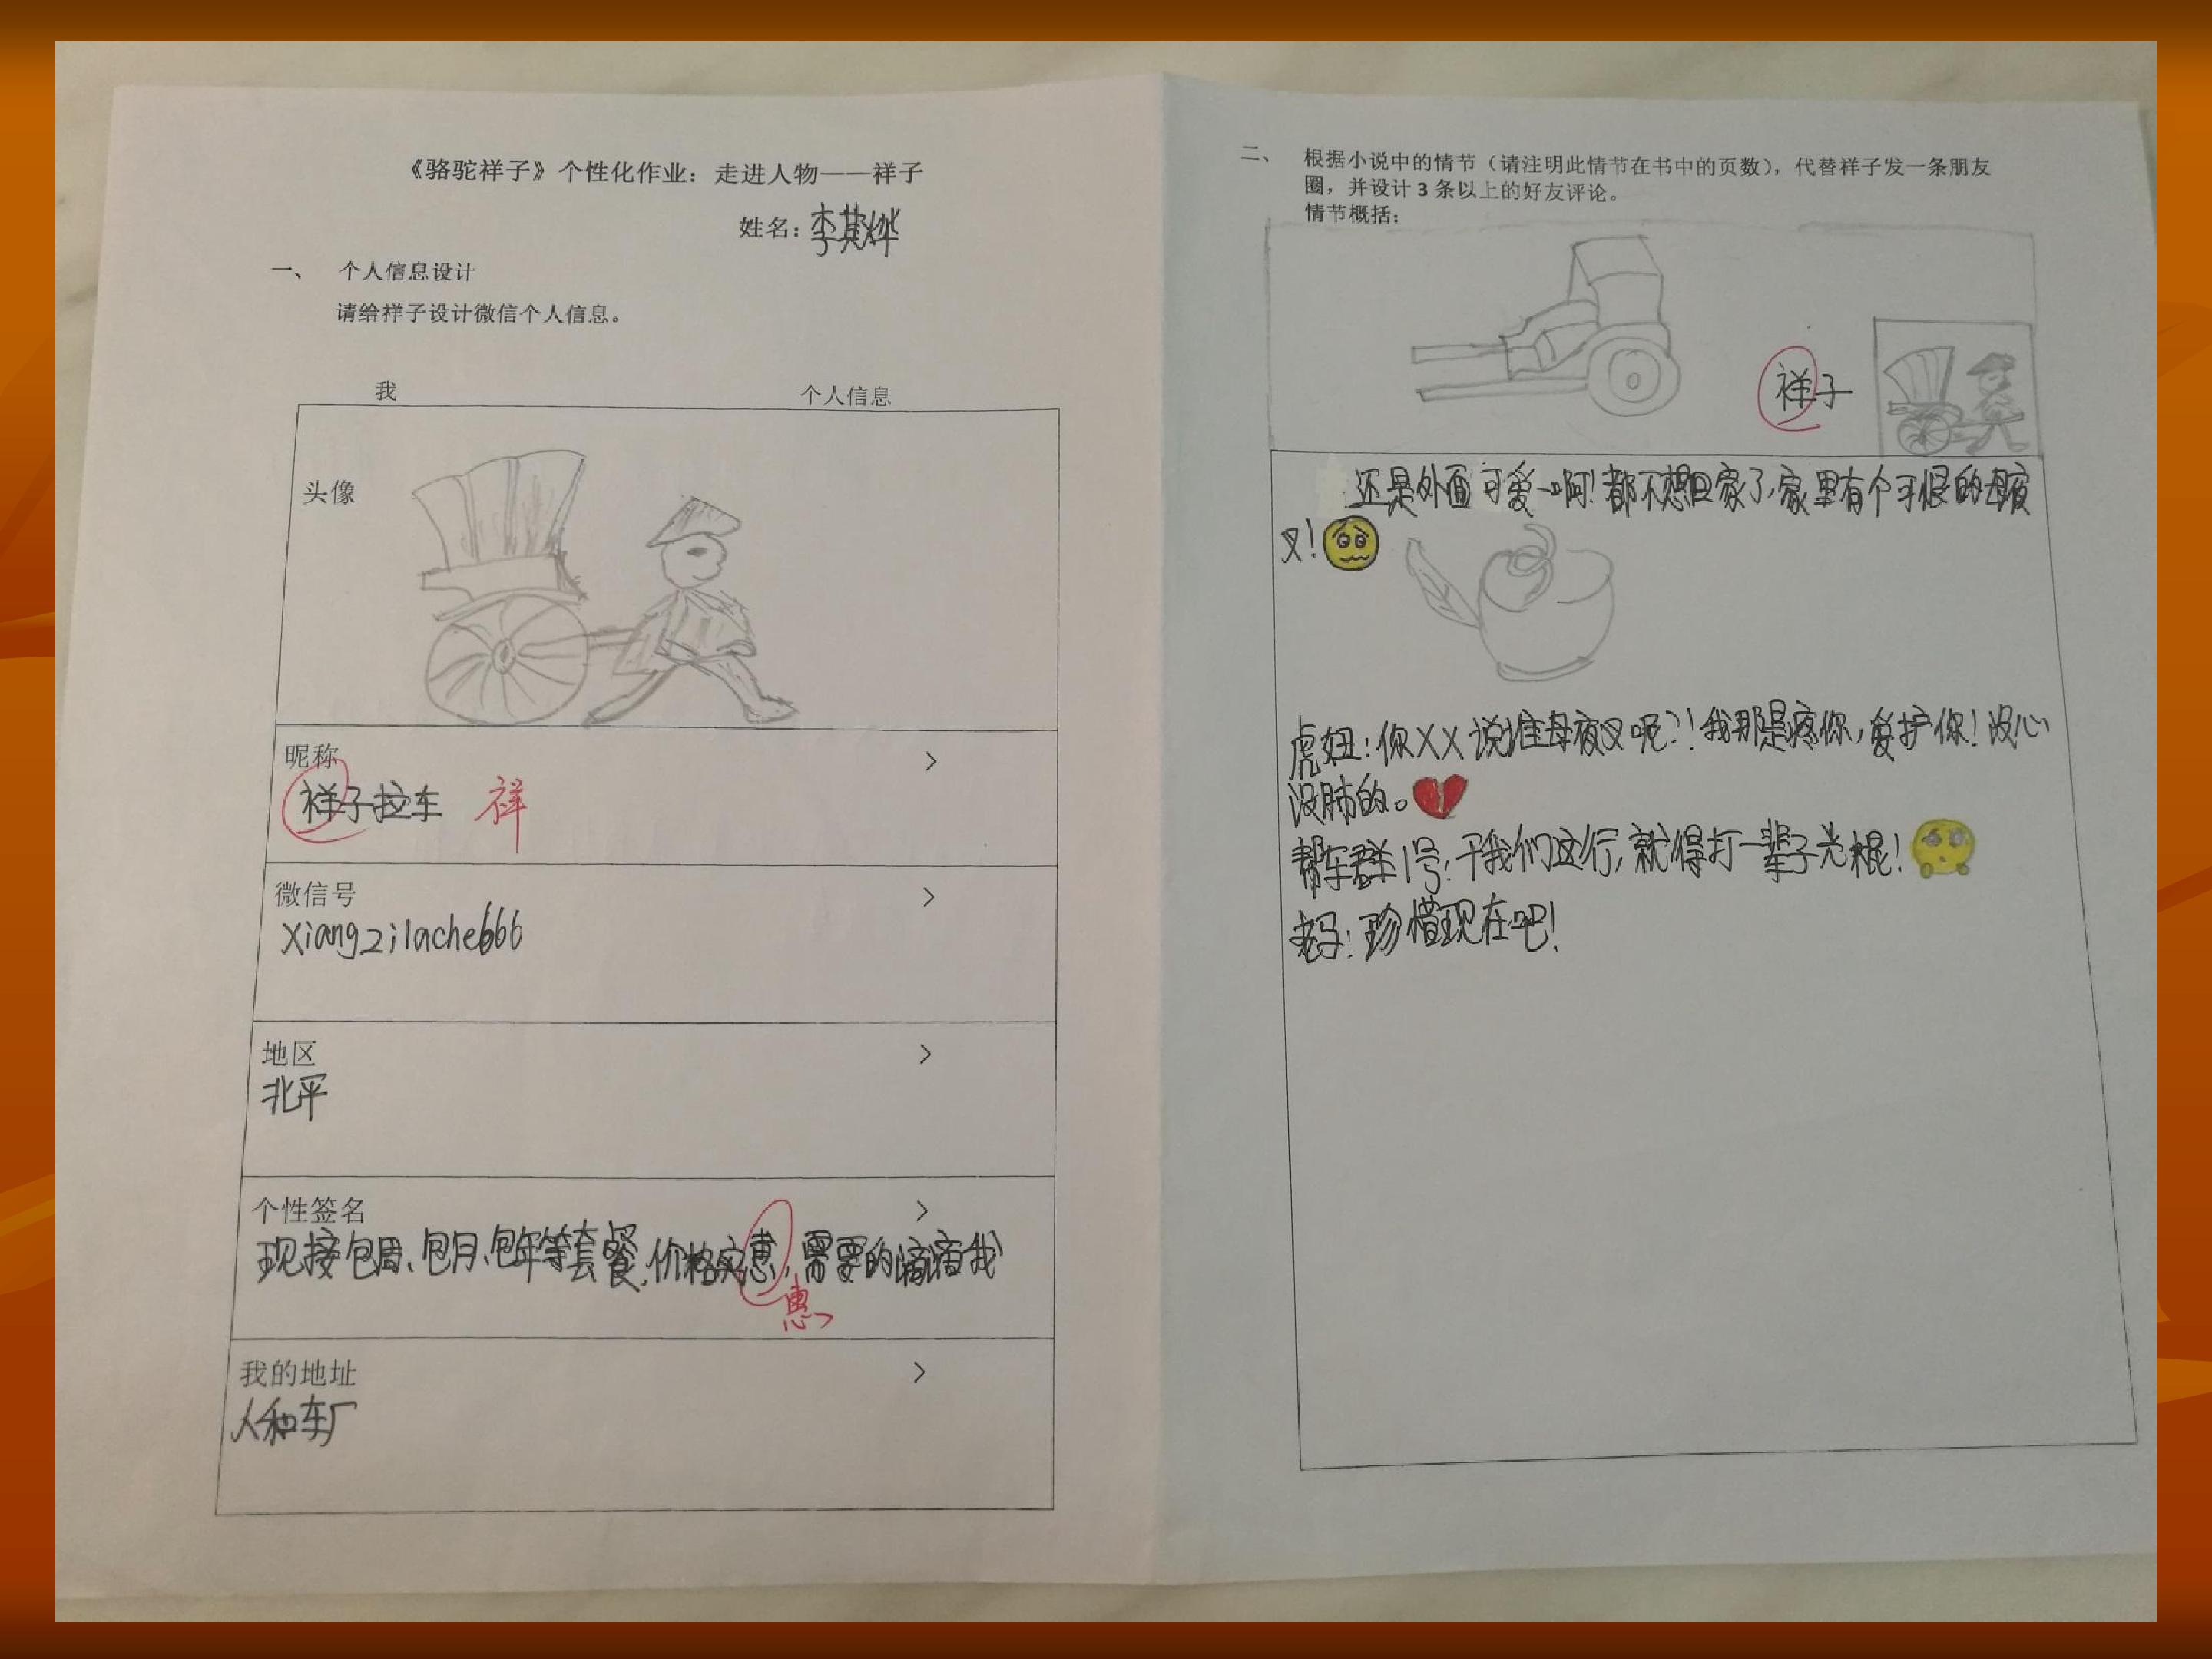 《骆驼祥子》个性化作业：走进人物——祥子
姓名：李其烨
一、 个人信息设计
请给祥子设计微信个人信息。
我 个人信息
头像
昵称 >
祥子拉车 祥
微信号 >
xiangzilache666
地区 >
北平
个性签名 >
现接包周、包月、包年等套餐,价格实惠,需要的滴滴我
惠
我的地址 >
人和车厂
二、 根据小说中的情节（请注明此情节在书中的页数），代替祥子发一条朋友
圈，并设计 3 条以上的好友评论。
情节概括：
祥子
还是外面可爱啊!都不想回家了,家里有个可恨的母夜
叉!
虎妞:你XX说谁母夜叉呢?!我那是疼你,爱护你!没心
没肺的。
帮车群1号:干我们这行,就得打一辈子光棍!
老马:珍惜现在吧!